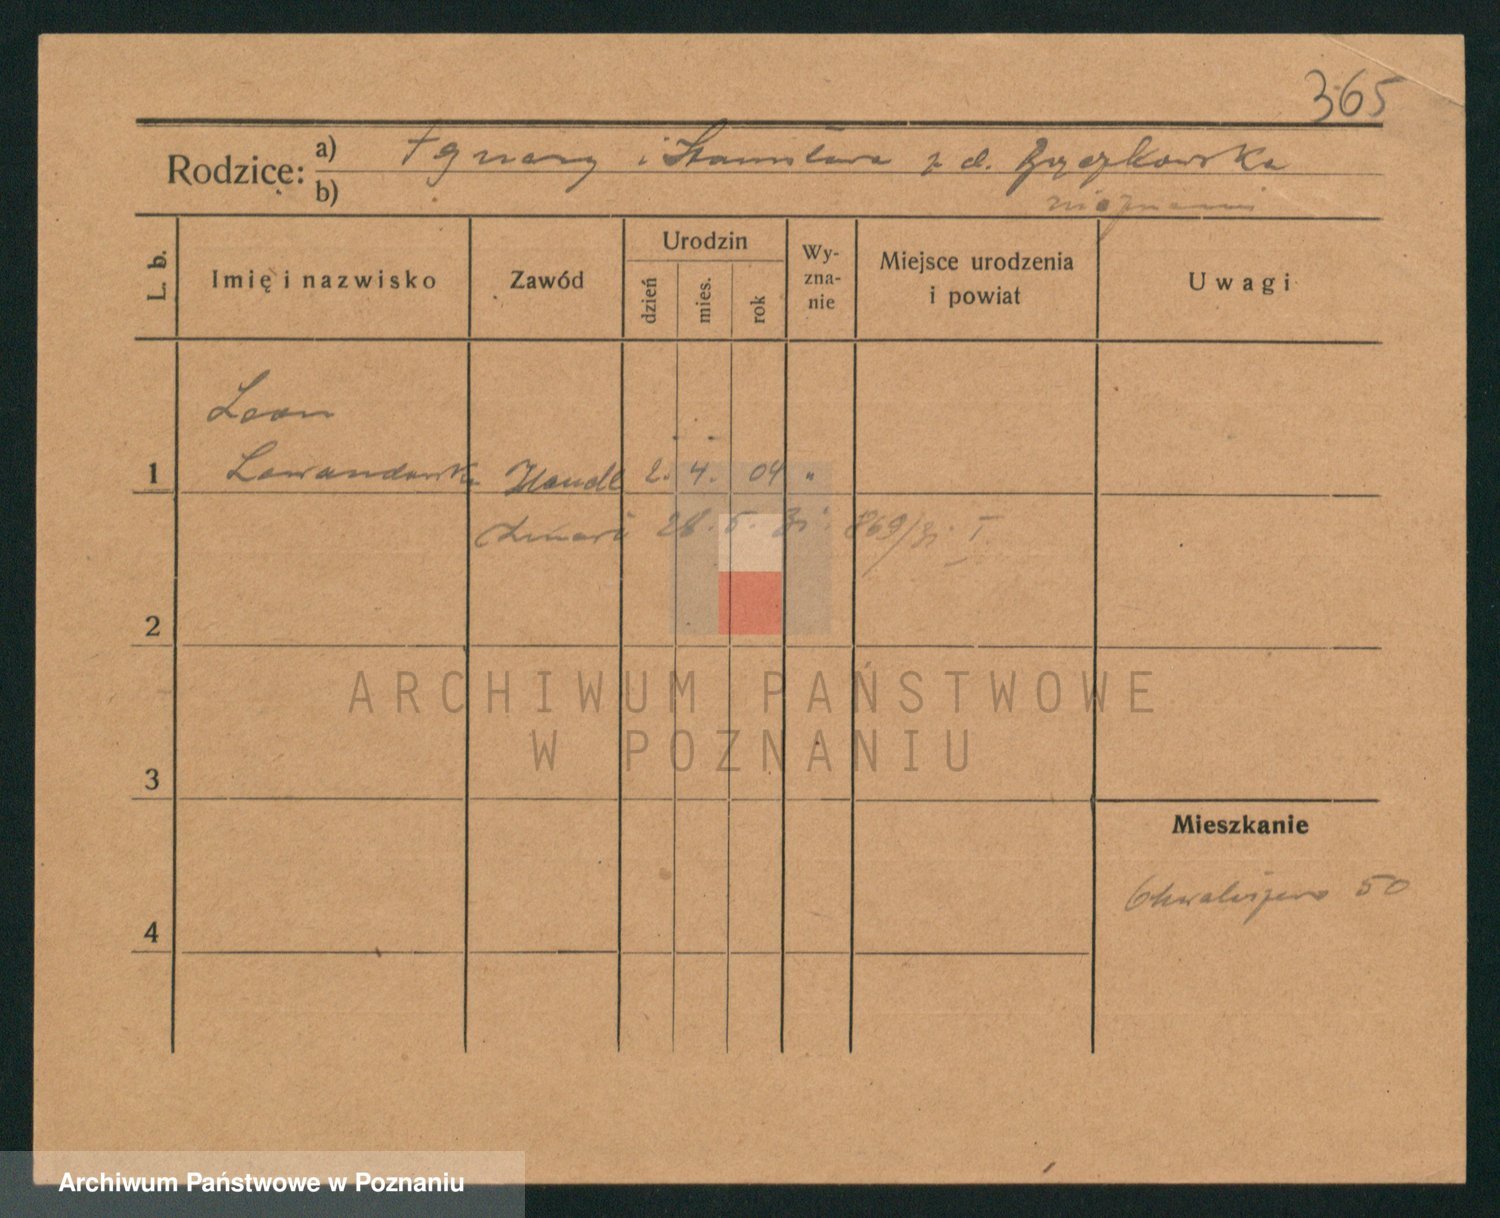 365
Rodzice: a) Ignacy i Stanisława z d.
b) nieznani
L. b.
Imię i nazwisko
Zawód
Urodzin
dzień
mies.
rok
Wy-
zna-
nie
Miejsce urodzenia
i powiat
Uwagi
Leon
1 Lewandowski Handl 2. 4. 04 "
zmarł 28. 5. 31. 869/31 I.
2
ARCHIWUM PAŃSTWOWE
W POZNANIU
3
Mieszkanie
Chwaliszewo 50
4
Archiwum Państwowe w Poznaniu